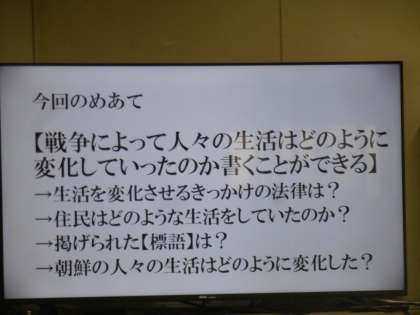 今回のめあて
【戦争によって人々の生活はどのように
変化していったのか書くことができる】
→生活を変化させるきっかけの法律は？
→住民はどのような生活をしていたのか？
→掲げられた【標語】は？
→朝鮮の人々の生活はどのように変化した？